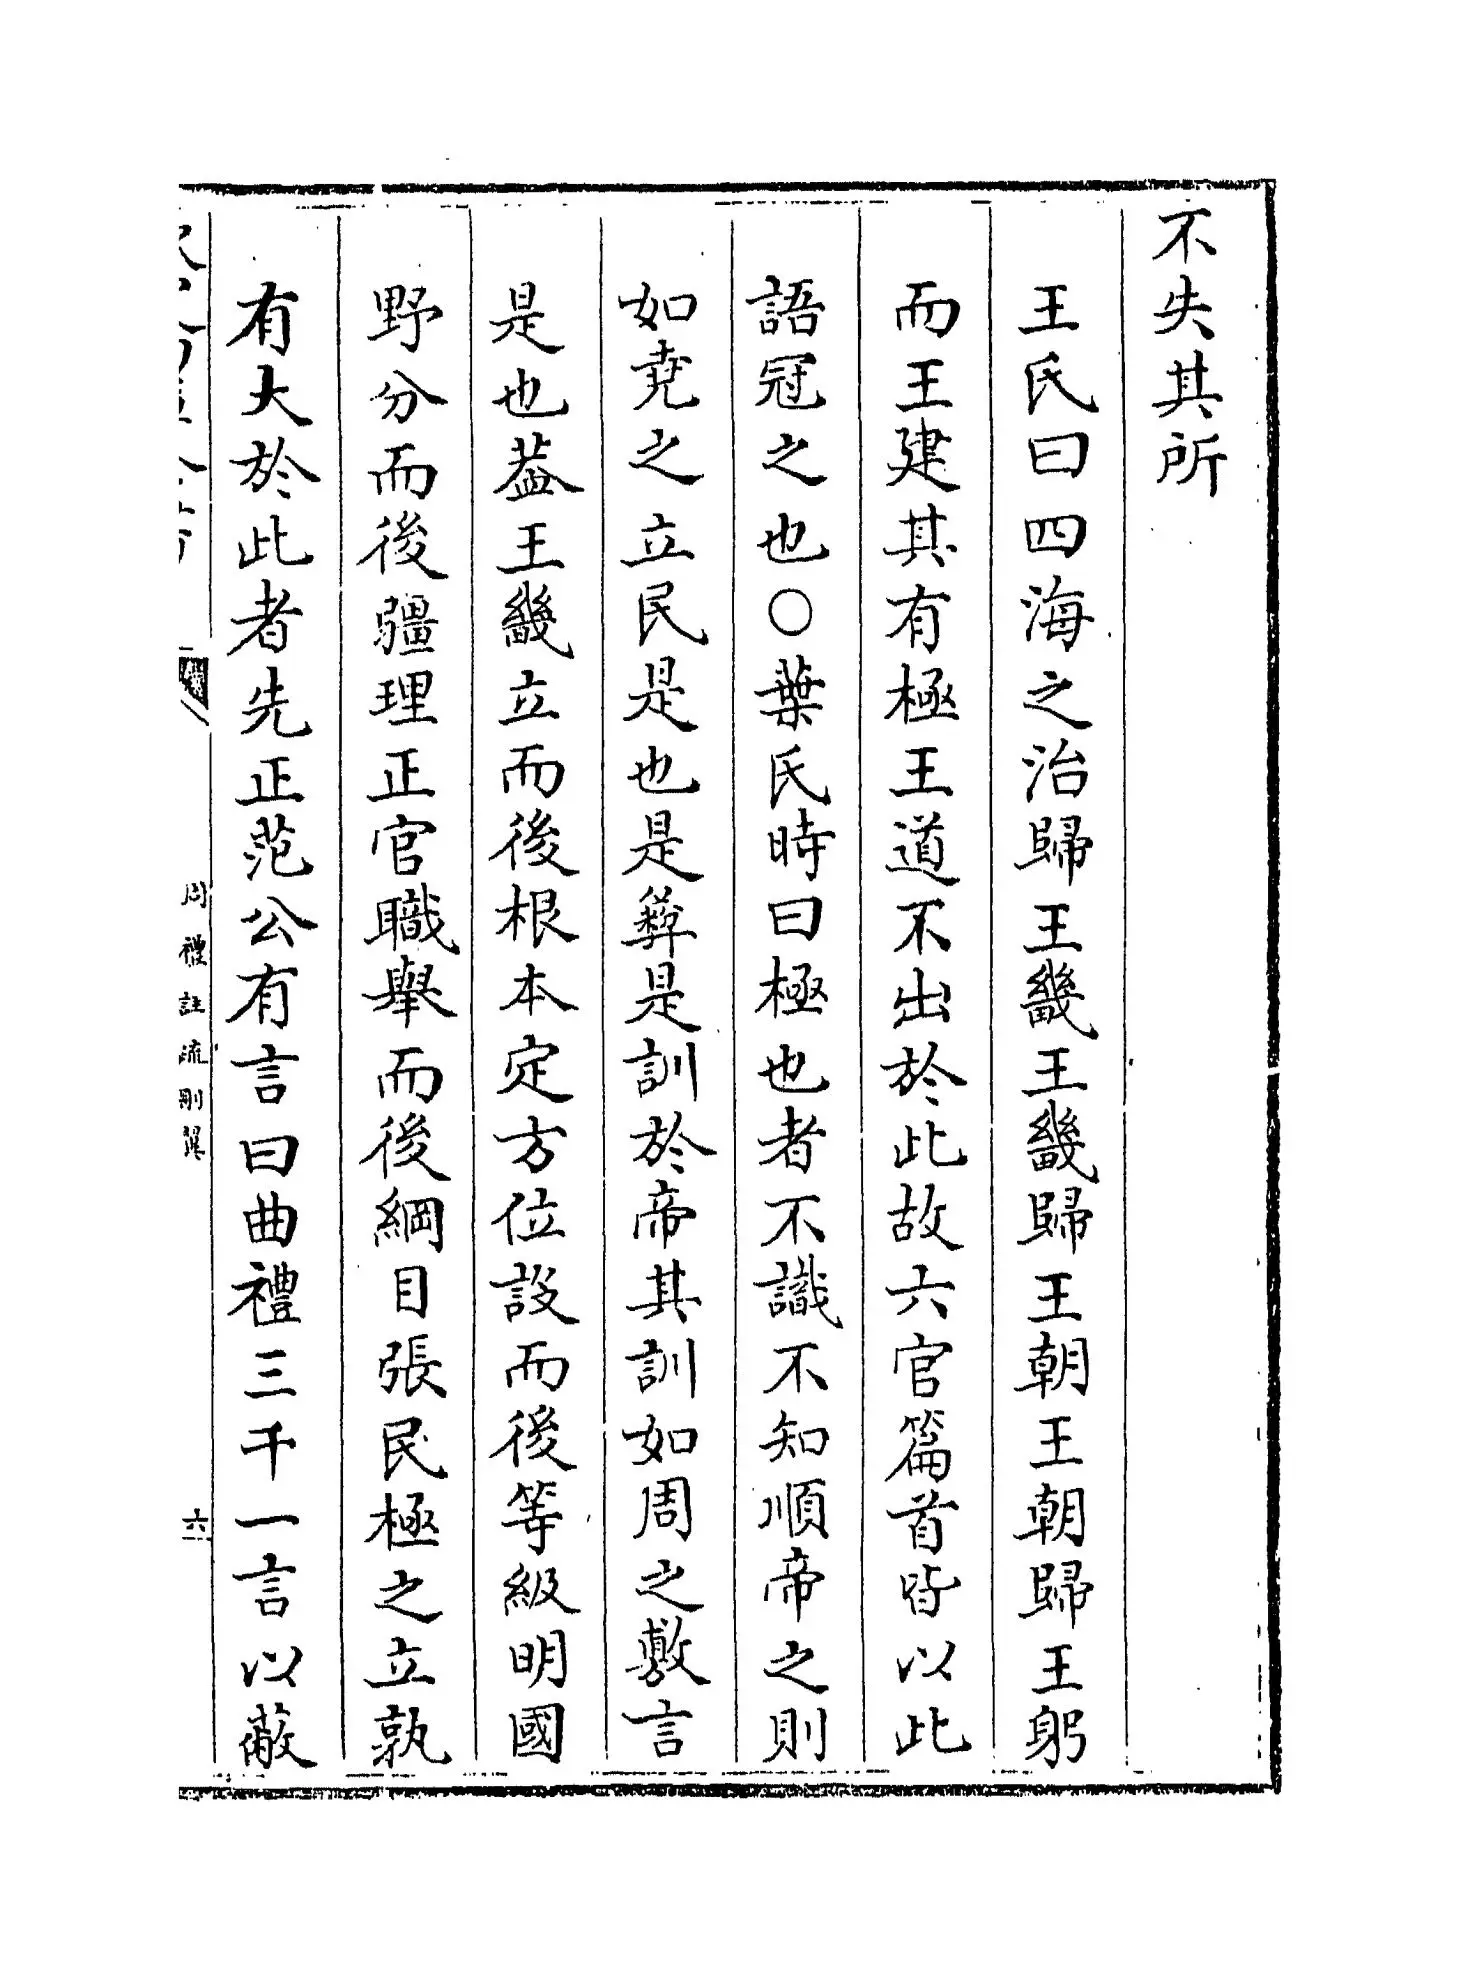 不失其所
王氏曰四海之治歸王畿王畿歸王朝王朝歸王躬
而王建其有極王道不出於此故六官篇首皆以此
語冠之也○葉氏時曰極也者不識不知順帝之則
如堯之立民是也是彛是訓於帝其訓如周之敷言
是也葢王畿立而後根本定方位設而後等級明國
野分而後疆理正官職舉而後綱目張民極之立孰
有大於此者先正范公有言曰曲禮三千一言以蔽
周禮註疏刪翼
六